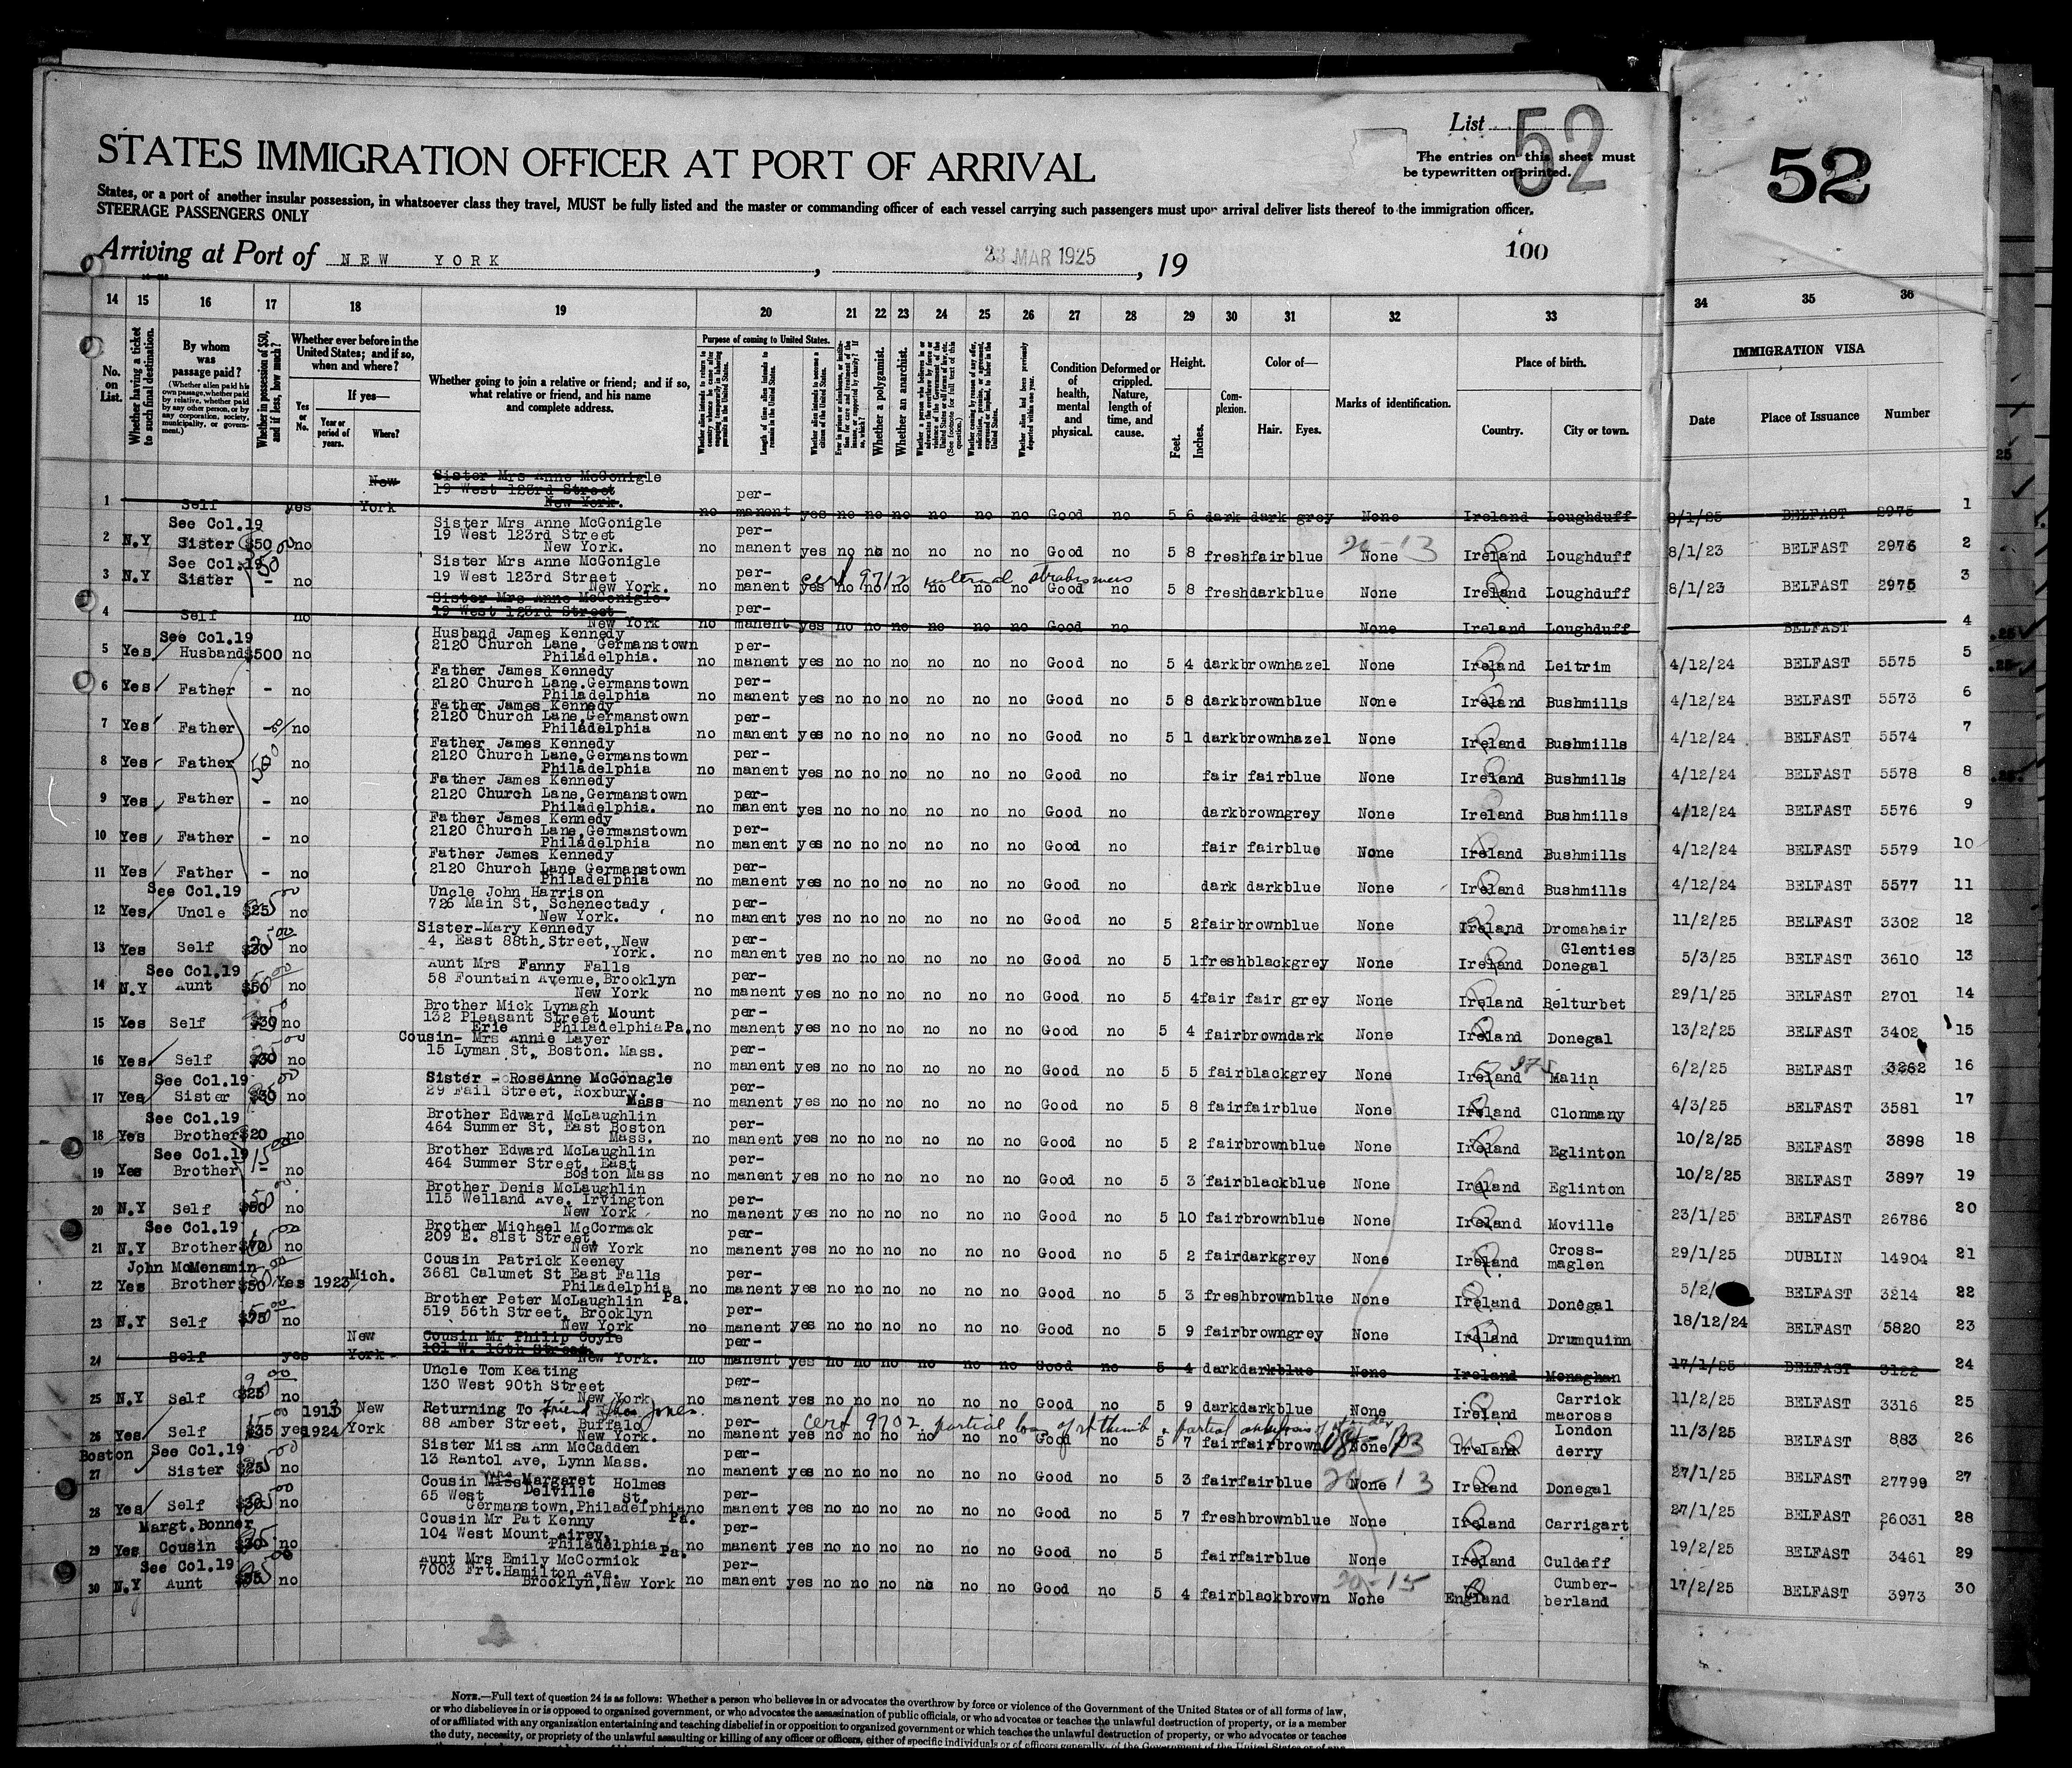 List 52
52
The entries on this sheet must
be typewritten or printed.
STATES IMMIGRATION OFFICER AT PORT OF ARRIVAL
States, or a port of another insular possession, in whatsoever class they travel, MUST be fully listed and the master or commanding officer of each vessel carrying such passengers must upon arrival deliver lists thereof to the immigration officer.
STEERAGE PASSENGERS ONLY
Arriving at Port of NEW YORK, 23 MAR 1925, 19
100
14 15 16 17 18 19 20 21 22 23 24 25 26 27 28 29 30 31 32 33 34 35 36
No. on List.
Whether having a ticket to such final destination.
By whom was passage paid?
(Whether alien paid his own passage, whether paid by relative, whether paid by any other person, or by any corporation, society, municipality, or government.)
Whether in possession of $50, and if less, how much?
Whether ever before in the United States; and if so, when and where?
Yes or No.
If yes—
Year or period of years.
Where?
Whether going to join a relative or friend; and if so, what relative or friend, and his name and complete address.
Purpose of coming to United States.
Length of time alien intends to remain in the United States.
Whether a polygamist.
Whether an anarchist.
Condition of health, mental and physical.
Deformed or crippled. Nature, length of time, and cause.
Height.
Feet. Inches.
Complexion.
Color of—
Hair. Eyes.
Marks of identification.
Place of birth.
Country. City or town.
IMMIGRATION VISA
Date Place of Issuance Number
1 Self yes New York Sister Mrs Anne McGonigle 19 West 123rd Street New York. no permanent yes no no no no no no Good no 5 6 dark dark grey None Ireland Loughduff 8/1/25 BELFAST 2975 1
2 N.Y See Col.19 Sister $50 no Sister Mrs Anne McGonigle 19 West 123rd Street New York. no permanent yes no no no no no no Good no 5 8 fresh fair blue None Ireland Loughduff 8/1/23 BELFAST 2976 2
3 N.Y See Col.19 Sister - no Sister Mrs Anne McGonigle 19 West 123rd Street New York. no permanent yes no no no no no no Good no 5 8 fresh dark blue None Ireland Loughduff 8/1/23 BELFAST 2975 3
cert 9712 internal strabismus
4 Self no Sister Mrs Anne McGonigle 19 West 123rd Street New York no permanent yes no no no no no no Good no None Ireland Loughduff BELFAST 4
5 Yes See Col.19 Husband $500 no Husband James Kennedy 2120 Church Lane, Germanstown Philadelphia. no permanent yes no no no no no no Good no 5 4 dark brown hazel None Ireland Leitrim 4/12/24 BELFAST 5575 5
6 Yes Father - no Father James Kennedy 2120 Church Lane. Germanstown Philadelphia no permanent yes no no no no no no Good no 5 8 dark brown blue None Ireland Bushmills 4/12/24 BELFAST 5573 6
7 Yes Father - no Father James Kennedy 2120 Church Lane, Germanstown Philadelphia no permanent yes no no no no no no Good no 5 1 dark brown hazel None Ireland Bushmills 4/12/24 BELFAST 5574 7
8 Yes Father no Father James Kennedy 2120 Church Lane, Germanstown Philadelphia no permanent yes no no no no no no Good no fair fair blue None Ireland Bushmills 4/12/24 BELFAST 5578 8
9 Yes Father - no Father James Kennedy 2120 Church Lane, Germanstown Philadelphia. no permanent yes no no no no no no Good no dark brown grey None Ireland Bushmills 4/12/24 BELFAST 5576 9
10 Yes Father - no Father James Kennedy 2120 Church Lane, Germanstown Philadelphia no permanent yes no no no no no no Good no fair fair blue None Ireland Bushmills 4/12/24 BELFAST 5579 10
11 Yes Father - no Father James Kennedy 2120 Church Lane Germanstown Philadelphia no permanent yes no no no no no no Good no dark dark blue None Ireland Bushmills 4/12/24 BELFAST 5577 11
12 Yes See Col.19 Uncle $25 no Uncle John Harrison 726 Main St, Schenectady New York. no permanent yes no no no no no no Good no 5 2 fair brown blue None Ireland Dromahair 11/2/25 BELFAST 3302 12
13 Yes Self $30 no Sister-Mary Kennedy 4, East 88th, Street, New York. no permanent yes no no no no no no Good no 5 1 fresh black grey None Ireland Glenties Donegal 5/3/25 BELFAST 3610 13
14 N.Y See Col.19 Aunt $50 no Aunt Mrs Fanny Falls 58 Fountain Avenue, Brooklyn New York no permanent yes no no no no no no Good no 5 4 fair fair grey None Ireland Belturbet 29/1/25 BELFAST 2701 14
15 Yes Self $30 no Brother Mick Lynagh 132 Pleasant Street, Mount Erie Philadelphia Pa. no permanent yes no no no no no no Good no 5 4 fair brown dark None Ireland Donegal 13/2/25 BELFAST 3402 15
16 Yes Self $30 no Cousin- Mrs Annie Layer 15 Lyman St, Boston. Mass. no permanent yes no no no no no no Good no 5 5 fair black grey None Ireland Malin 6/2/25 BELFAST 3262 16
17 Yes See Col.19 Sister $30 no Sister - RoseAnne McGonagle 29 Fall Street, Roxbury. Mass no permanent yes no no no no no no Good no 5 8 fair fair blue None Ireland Clonmany 4/3/25 BELFAST 3581 17
18 Yes See Col.19 Brother $20 no Brother Edward McLaughlin 464 Summer St, East Boston Mass. no permanent yes no no no no no no Good no 5 2 fair brown blue None Ireland Eglinton 10/2/25 BELFAST 3898 18
19 Yes See Col.19 Brother - no Brother Edward McLaughlin 464 Summer Street, East Boston Mass no permanent yes no no no no no no Good no 5 3 fair black blue None Ireland Eglinton 10/2/25 BELFAST 3897 19
20 N.Y Self $50 no Brother Denis McLaughlin 115 Welland Ave, Irvington New York no permanent yes no no no no no no Good no 5 10 fair brown blue None Ireland Moville 23/1/25 BELFAST 26786 20
21 N.Y See Col.19 Brother no Brother Michael McCormack 209 E. 81st Street, New York no permanent yes no no no no no no Good no 5 2 fair dark grey None Ireland Crossmaglen 29/1/25 DUBLIN 14904 21
22 Yes John McMenamin Brother $50 Yes 1923 Mich. Cousin Patrick Keeney 3681 Calumet St East Falls Philadelphia Pa. no permanent yes no no no no no no Good no 5 3 fresh brown blue None Ireland Donegal 5/2/ BELFAST 3214 22
23 N.Y Self $75 no Brother Peter McLaughlin 519 56th Street, Brooklyn New York no permanent yes no no no no no no Good no 5 9 fair brown grey None Ireland Drumquinn 18/12/24 BELFAST 5820 23
24 Self yes New York Cousin Mr Philip Coyle 101 W. 16th Street, New York. no permanent yes no no no no no no Good no 5 4 dark dark blue None Ireland Monaghan 17/1/25 BELFAST 3122 24
25 N.Y Self $25 no Uncle Tom Keating 130 West 90th Street New York no permanent yes no no no no no no Good no 5 9 dark dark blue None Ireland Carrick macross 11/2/25 BELFAST 3316 25
26 Yes Self $35 yes 1913 1924 New York Returning To Friend Jones 88 Amber Street, Buffalo New York. no permanent yes no no no no no no Good no 5 7 fair fair brown None Ireland London derry 11/3/25 BELFAST 883 26
cert 9702 partial loss of rt thumb
27 Boston See Col.19 Sister $25 no Sister Miss Ann McCadden 13 Rantol Ave, Lynn Mass. no permanent yes no no no no no no Good no 5 3 fair fair blue None Ireland Donegal 27/1/25 BELFAST 27799 27
28 Yes Self $30 no Cousin Margaret Holmes 65 West Delville St. Germanstown, Philadelphia Pa. no permanent yes no no no no no no Good no 5 7 fresh brown blue None Ireland Carrigart 27/1/25 BELFAST 26031 28
29 Yes Margt. Bonner Cousin $30 no Cousin Mr Pat Kenny 104 West Mount Airey, Philadelphia Pa. no permanent yes no no no no no no Good no 5 fair fair blue None Ireland Culdaff 19/2/25 BELFAST 3461 29
30 N.Y See Col.19 Aunt no Aunt Mrs Emily McCormick 7003 Frt. Hamilton Ave. Brooklyn, New York no permanent yes no no no no no no Good no 5 4 fair black brown None England Cumberberland 17/2/25 BELFAST 3973 30
NOTE.—Full text of question 24 is as follows: Whether a person who believes in or advocates the overthrow by force or violence of the Government of the United States or of all forms of law,
or who disbelieves in or is opposed to organized government, or who advocates the assassination of public officials, or who advocates or teaches the unlawful destruction of property, or is a member
of or affiliated with any organization entertaining and teaching disbelief in or opposition to organized government or which teaches the unlawful destruction of property, or who advocates or teaches
the duty, necessity, or propriety of the unlawful assaulting or killing of any officer or officers, either of specific individuals or of officers generally, of the Government of the United States or of any